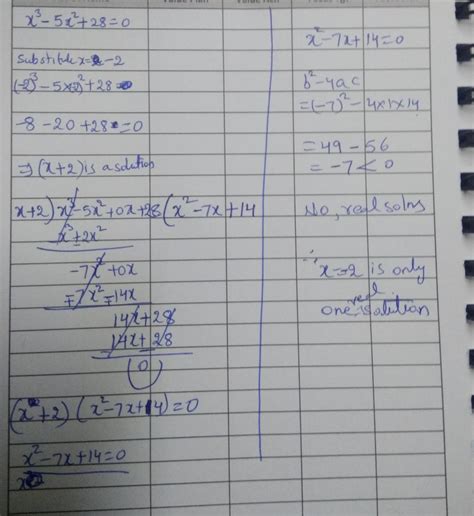 x³ - 5x² + 28 = 0
Substitute x = -2
(-2)³ - 5×(-2)² + 28 = 0
-8 - 20 + 28 = 0
⇒ (x+2) is a solution
x+2) x³ - 5x² + 0x + 28 (x² - 7x + 14
x³ + 2x²
-7x² + 0x
∓7x² ∓ 14x
14x + 28
14x + 28
(0)
(x+2) (x² - 7x + 14) = 0
x² - 7x + 14 = 0
x² - 7x + 14 = 0
b² - 4ac
= (-7)² - 4×1×14
= 49 - 56
= -7 < 0
No, real solns
∴ x = -2 is only
one real solution